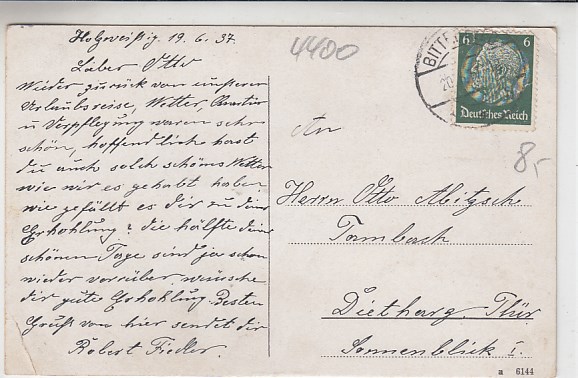 Holzweißig 19.6.37.
Lieber Otto
Wieder zurück von unserer
Urlaubsreise, Wetter, Quartier
u Verpflegung waren sehr
schön, hoffendliche hast
du auch solch schönes Wetter
wie wir es gehabt haben
wie gefällt es dir zu deine
Erhohlung? die hälfte deine
schönen Tage sind ja schon
wieder vorrüber, wünsche
dir gute Erhohlung. Besten
Gruß von hier sendet dir
Robert Fiedler.
4400
BITTE
20.
6 6
Deutsches Reich
8,-
An
Herrn Otto Abitzsch
Tambach
Dietharz. Thür.
Sonnenblick I.
a 6144